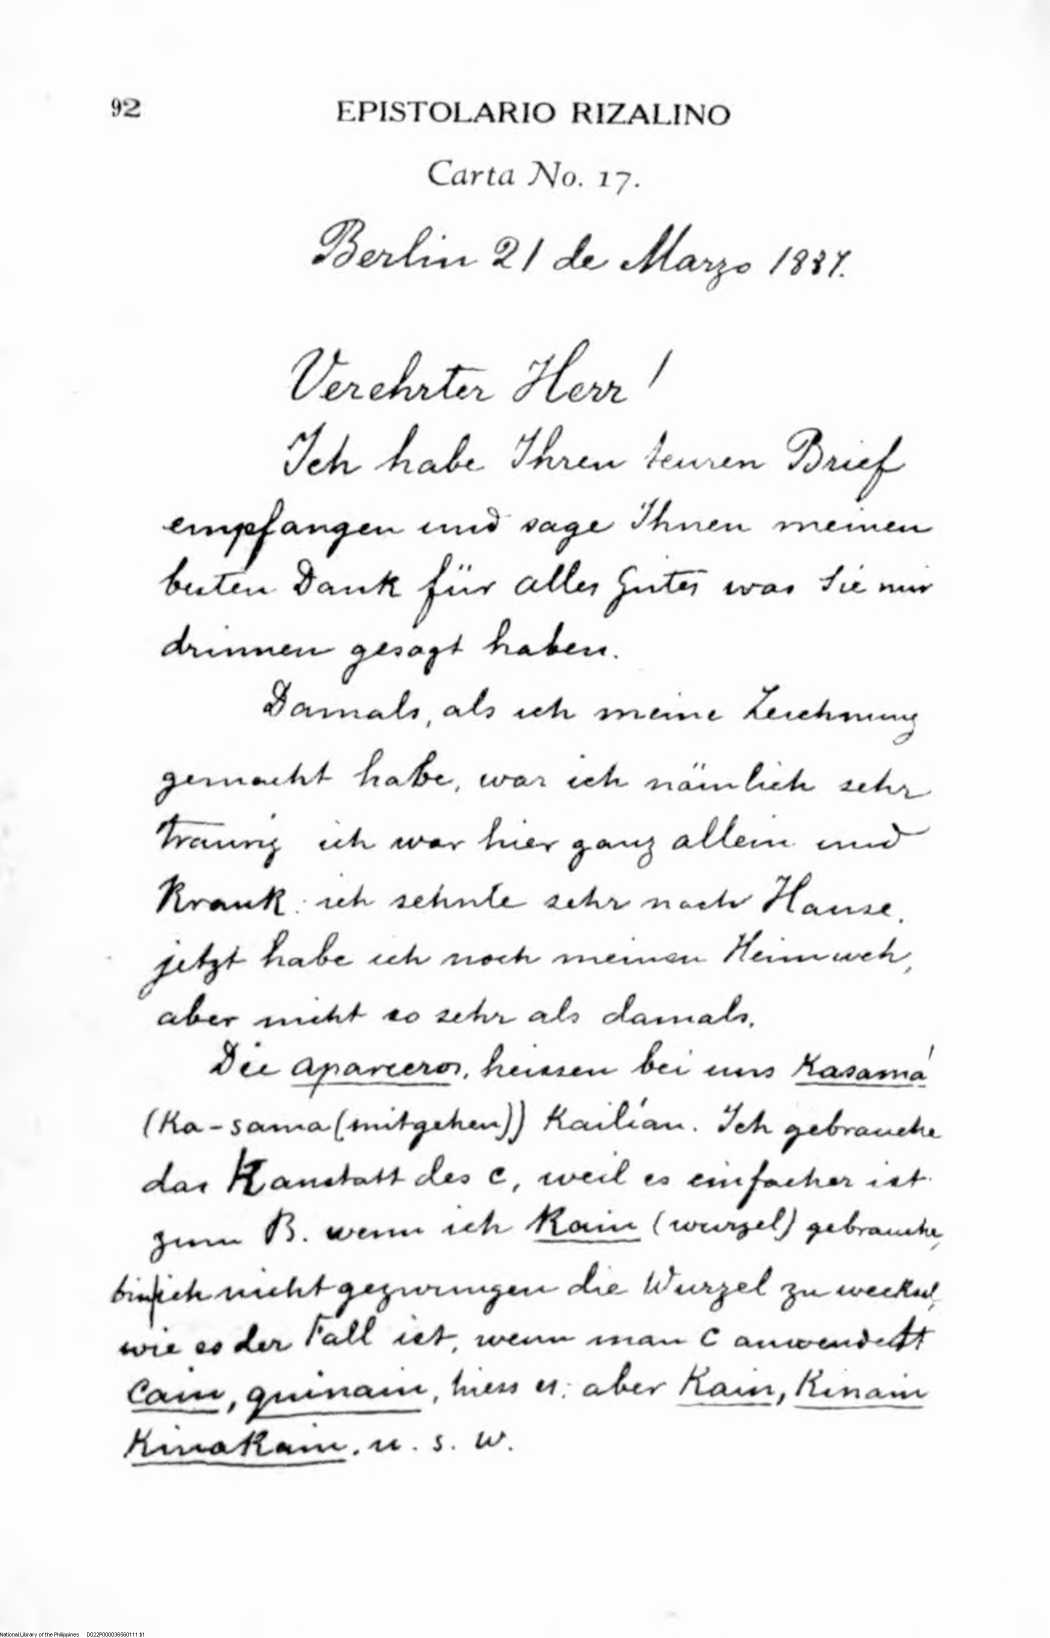 92
EPISTOLARIO RIZALINO
Carta No. 17.
Berlin 21 de Marzo 1887.
Verehrter Herr!
Ich habe Ihren teuren Brief
empfangen und sage Ihnen meinen
besten Dank für alles Gutes was Sie mir
drinnen gesagt haben.
Damals, als ich meine Zeichnung
gemacht habe, war ich nämlich sehr
traurig ich war hier ganz allein und
Krank: ich sehnte sehr nach Hause.
jetzt habe ich noch meinen Heimweh,
aber nicht so sehr als damals.
Die aparceros, heissen bei uns Kasamá
(Ka-sama (mitgehen)) Kailían. Ich gebrauche
das K anstatt des c, weil es einfacher ist.
zum B. wenn ich Kain (wurzel) gebrauche,
bin ich nicht gezwungen die Wurzel zu wechsel,
wie es der Fall ist, wenn man C anwendet
Cain, quinain, hiess es: aber Kain, Kinain
Kinakain, u. s. w.
National Library of the Philippines